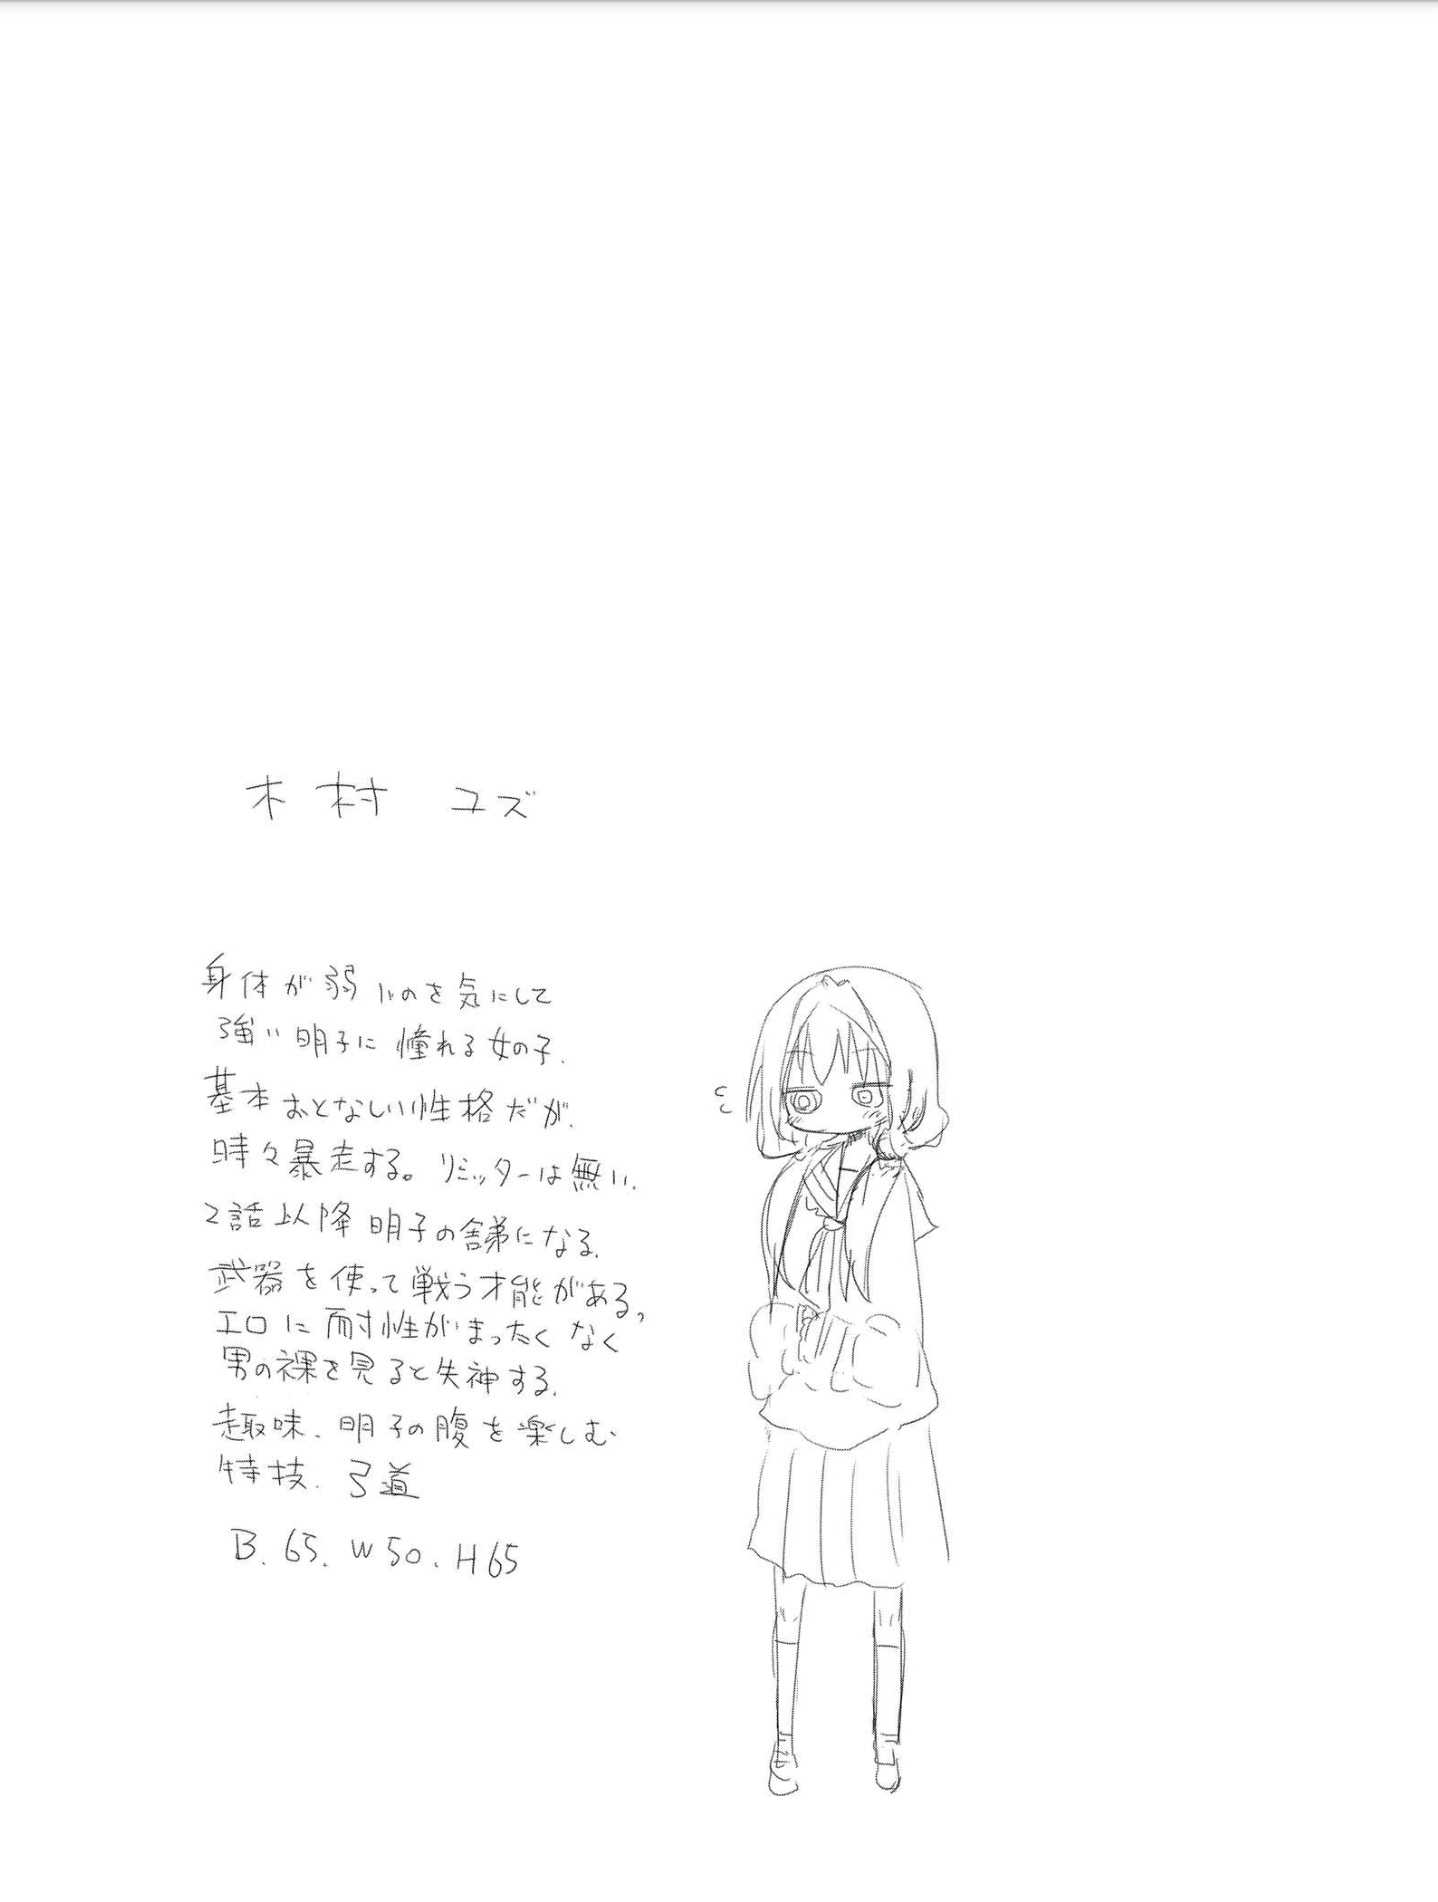 木村 ユズ
身体が弱いのを気にして
強い明子に憧れる女の子.
基本おとなしい性格だが.
時々暴走する。リミッターは無い.
2話以降明子の舎弟になる.
武器を使って戦う才能がある,
エロに耐性がまったくなく
男の裸を見ると失神する.
趣味.明子の腹を楽しむ
特技.弓道
B.65.W50.H65